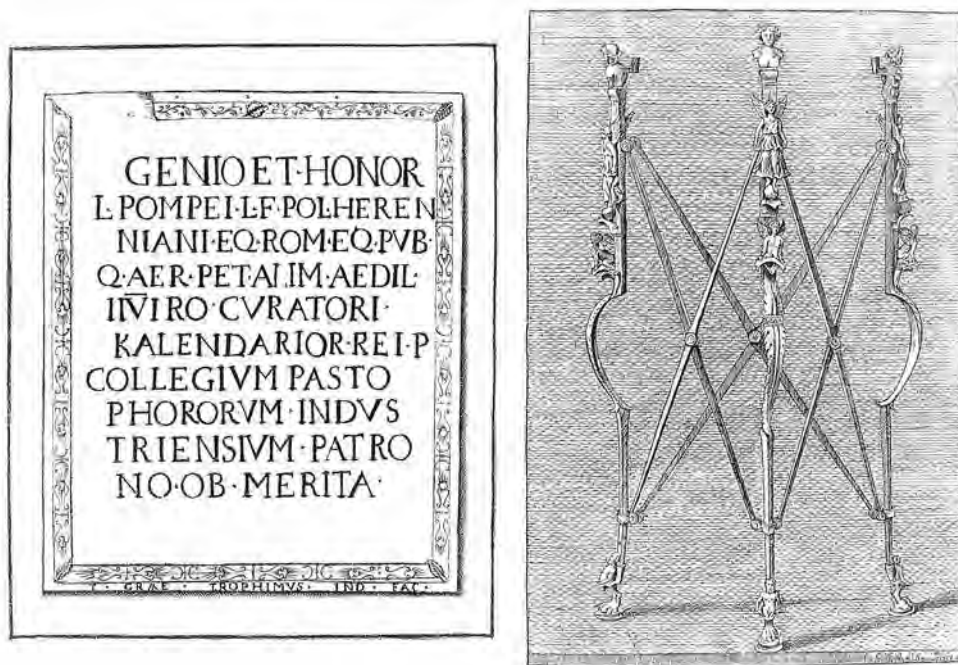 GENIO ET·HONOR
L·POMPEI·L·F·POL·HEREN
NIANI·EQ·ROM·EQ·PVB·
Q·AER·P·ET·ALIM·AEDIL·
IIVIRO·CVRATORI·
KALENDARIOR·REI·P
COLLEGIVM PASTO
PHORORVM·INDVS
TRIENSIVM·PATRO
NO·OB·MERITA·
GRAE · TROPHIMVS · IND · FAC ·